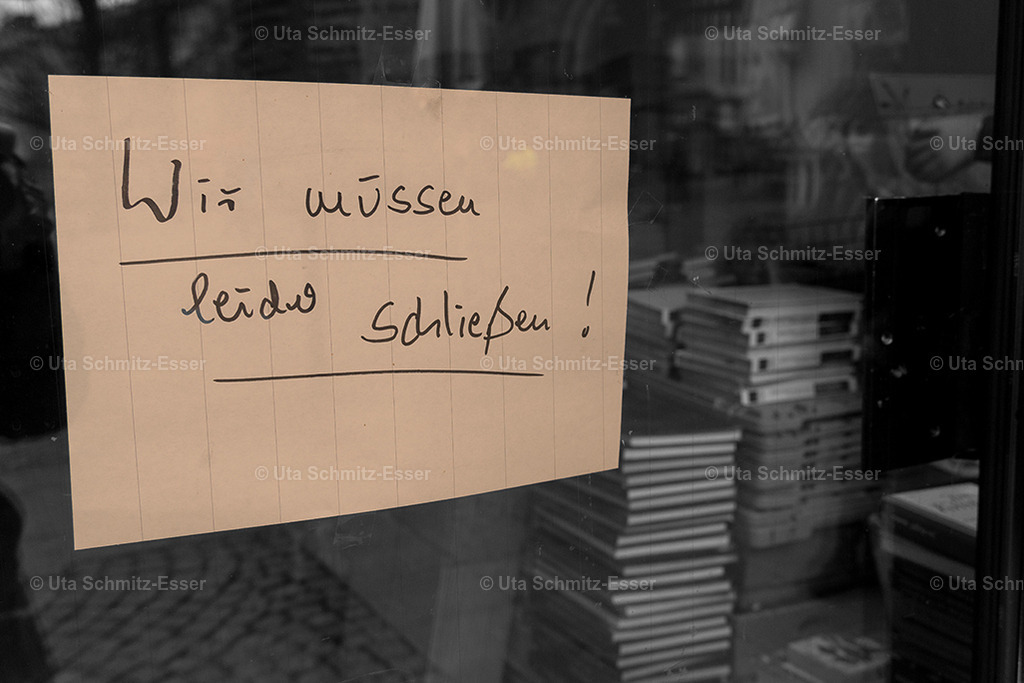 © Uta Schmitz-Esser © Uta Schmitz-Esser
© Uta Schmitz-Esser © Uta Schmitz-Esser © Uta Schmitz-Esser
Wir müssen
© Uta Schmitz-Esser © Uta Schmitz-Esser
leider schließen!
© Uta Schmitz-Esser © Uta Schmitz-Esser © Uta Schmitz-Esser
© Uta Schmitz-Esser © Uta Schmitz-Esser
© Uta Schmitz-Esser © Uta Schmitz-Esser © Uta Schmitz-Esser